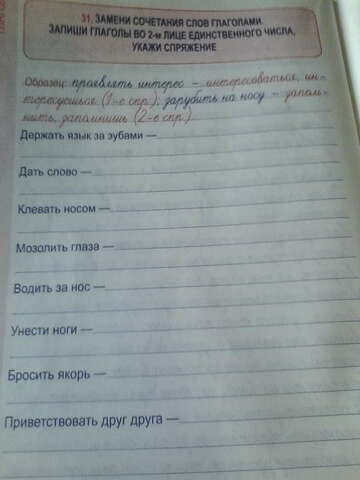 31. ЗАМЕНИ СОЧЕТАНИЯ СЛОВ ГЛАГОЛАМИ.
ЗАПИШИ ГЛАГОЛЫ ВО 2-м ЛИЦЕ ЕДИНСТВЕННОГО ЧИСЛА,
УКАЖИ СПРЯЖЕНИЕ
Образец: проявлять интерес – интересоваться, ин-
тересуешься (1-е спр.), зарубить на носу – запом-
нить, запомнишь (2-е спр.)
Держать язык за зубами —
Дать слово —
Клевать носом —
Мозолить глаза —
Водить за нос —
Унести ноги —
Бросить якорь —
Приветствовать друг друга —